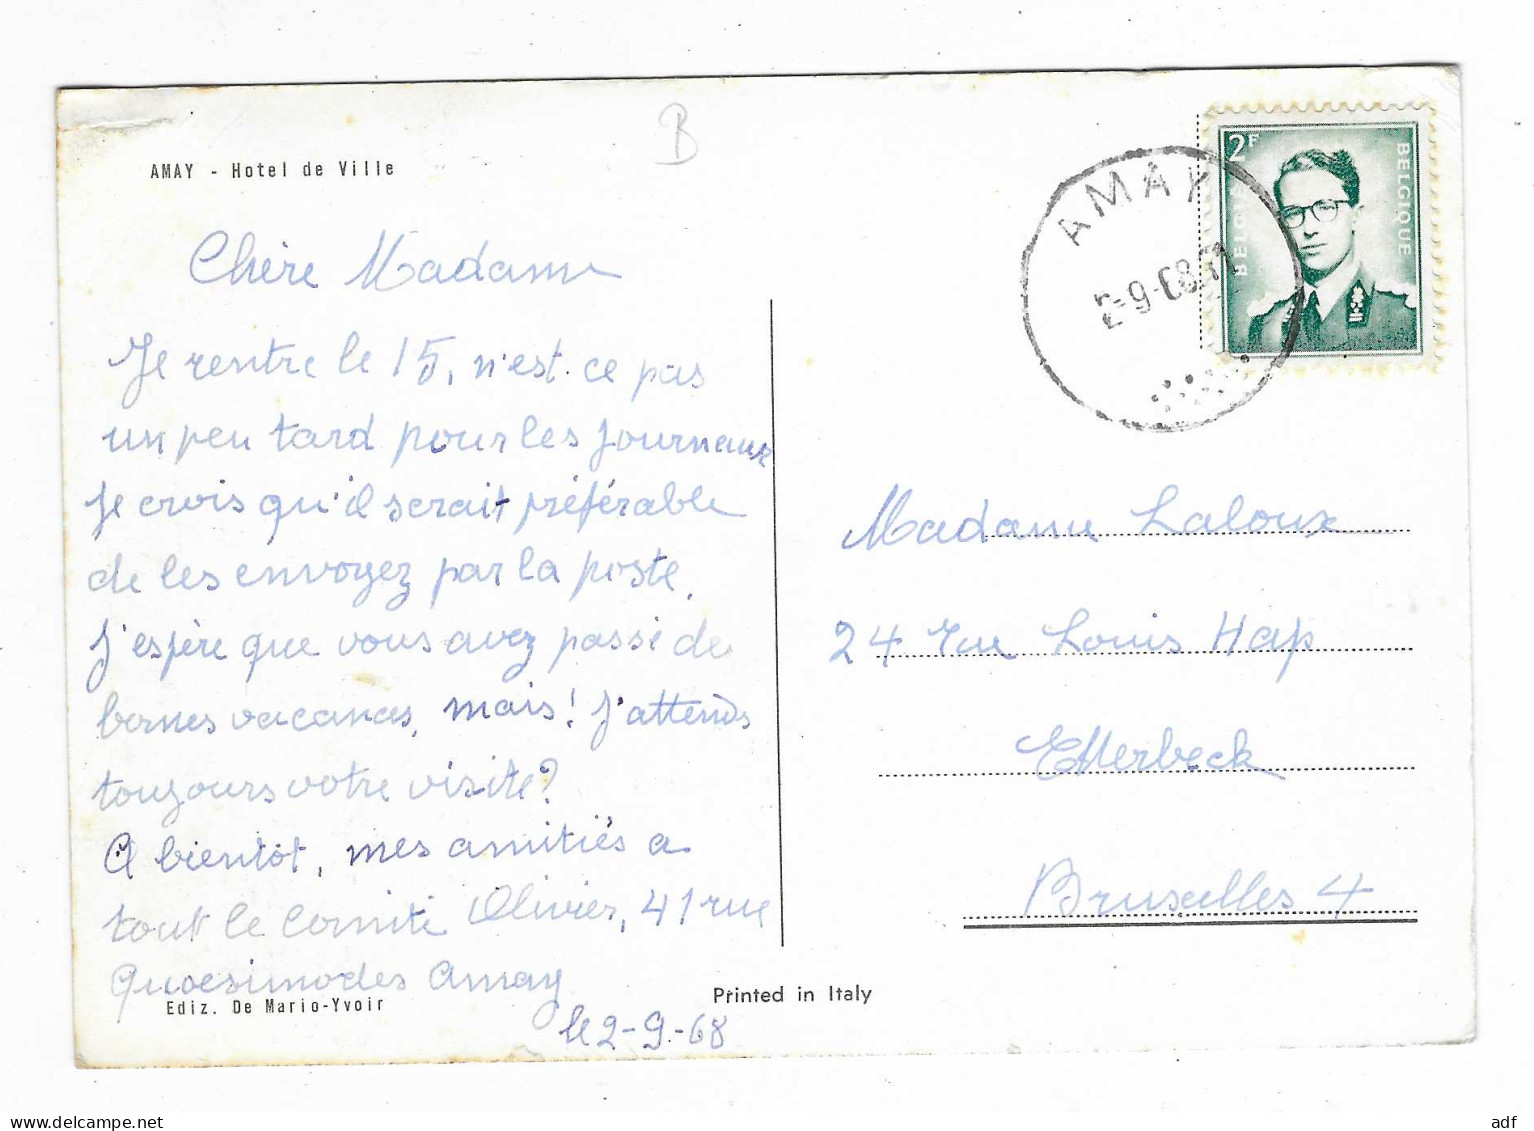 AMAY - Hotel de Ville
B
Chère Madame
Je rentre le 15, n'est-ce pas
un peu tard pour les journaux
Je crois qu'il serait préférable
de les envoyez par la poste.
J'espère que vous avez passé de
bonnes vacances, mais! J'attends
toujours votre visite?
A bientôt, mes amitiés a
tout le comité Olivier, 41 rue
Quoesimodes Amay
le 2-9-68
Ediz. De Mario-Yvoir
Printed in Italy
2F
BELGIË
BELGIQUE
AMAY
2-9-68
Madame Laloux
24 rue Louis Hap
Etterbeck
Bruxelles 4
adf